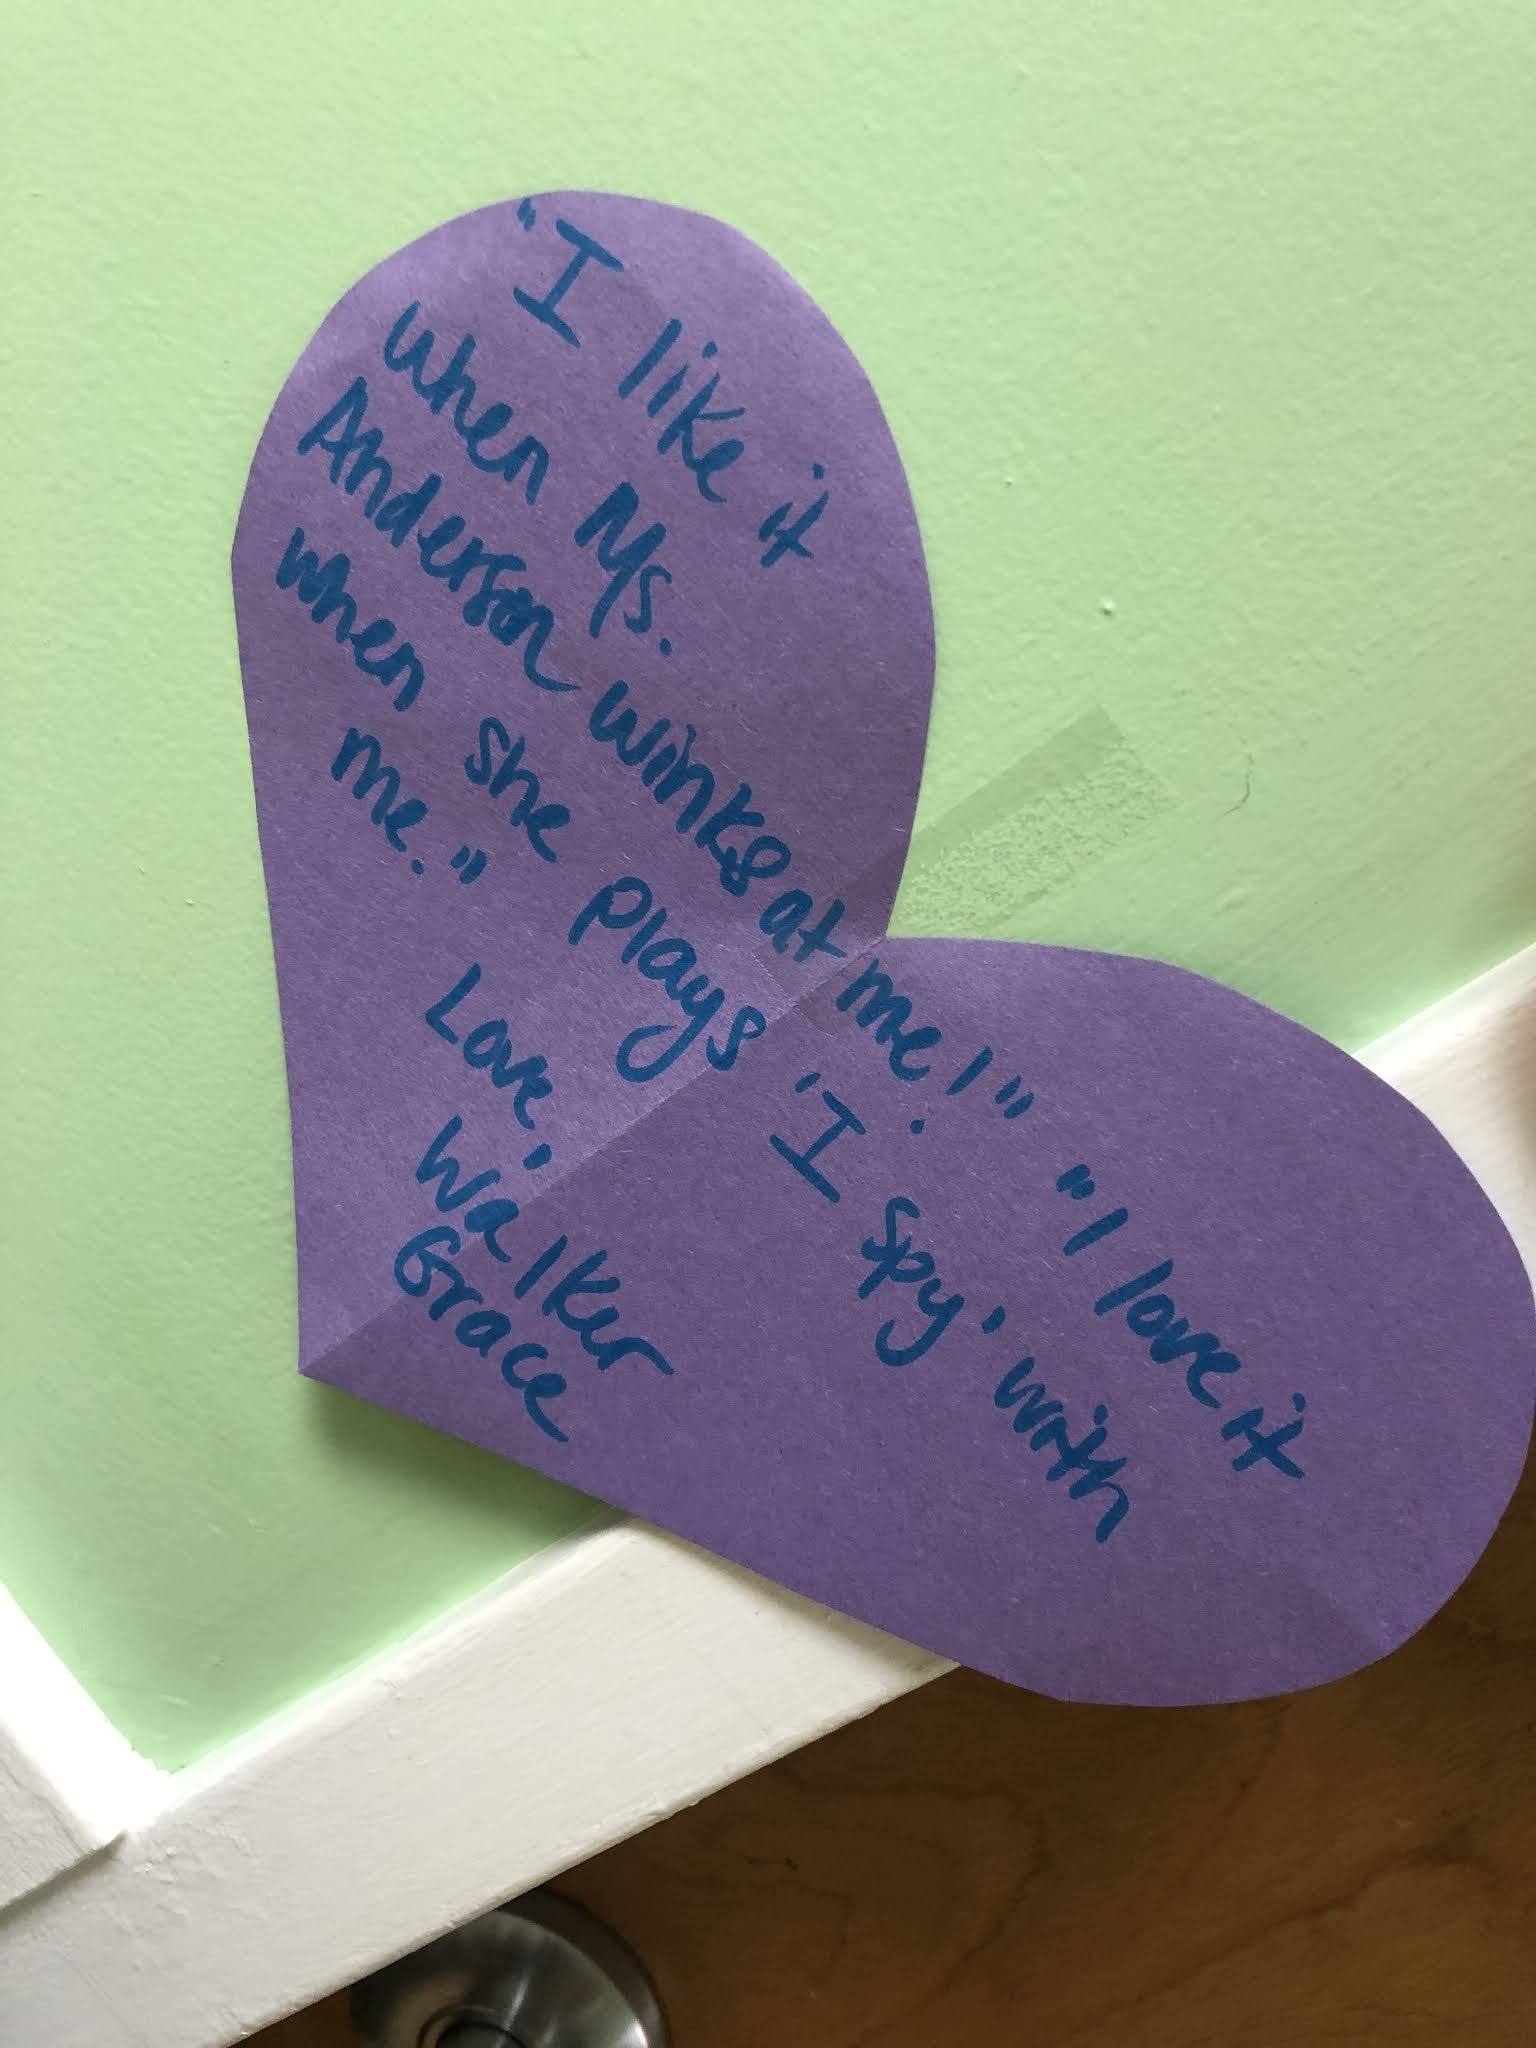 "I like it
when Ms.
Anderson winks at me!" "I love it
when she plays 'I spy' with
me."
Love,
Walker
Grace